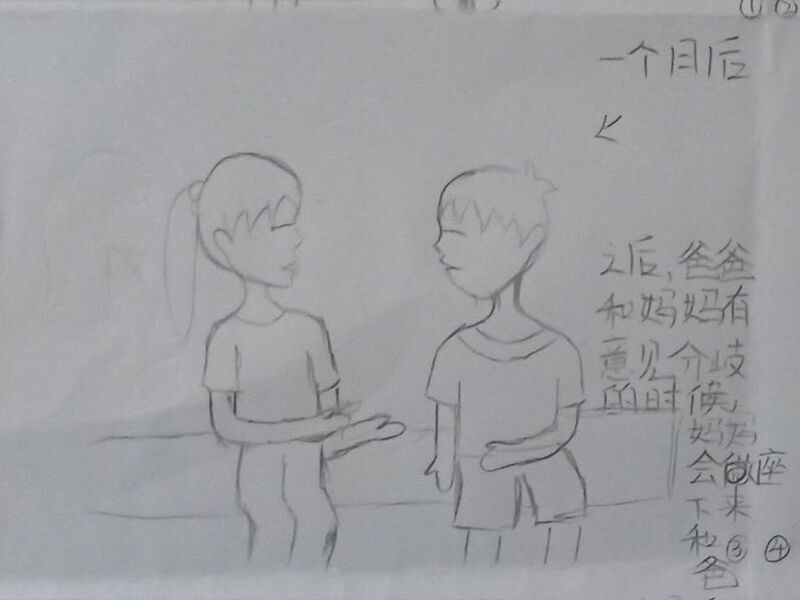 ①
一个月后
之后,爸爸
和妈妈有
意见分歧
的时候,
妈妈
会做座
下来
和③④
爸